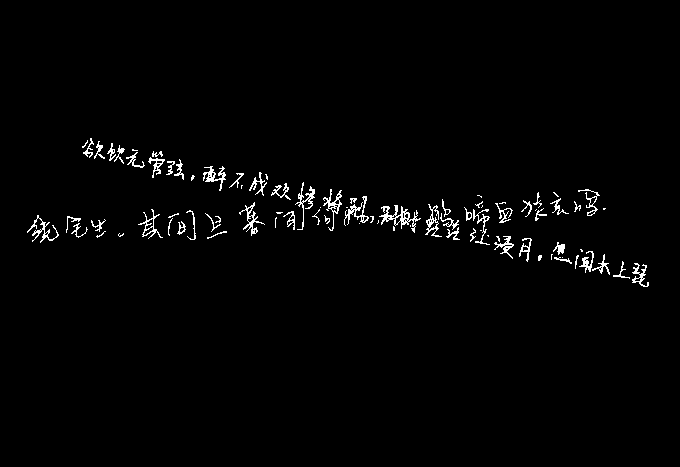 欲饮无管弦。醉不成欢惨将别,别时茫茫江浸月。忽闻水上琵
绕宅生。其间旦暮闻何物,杜鹃啼血猿哀鸣.